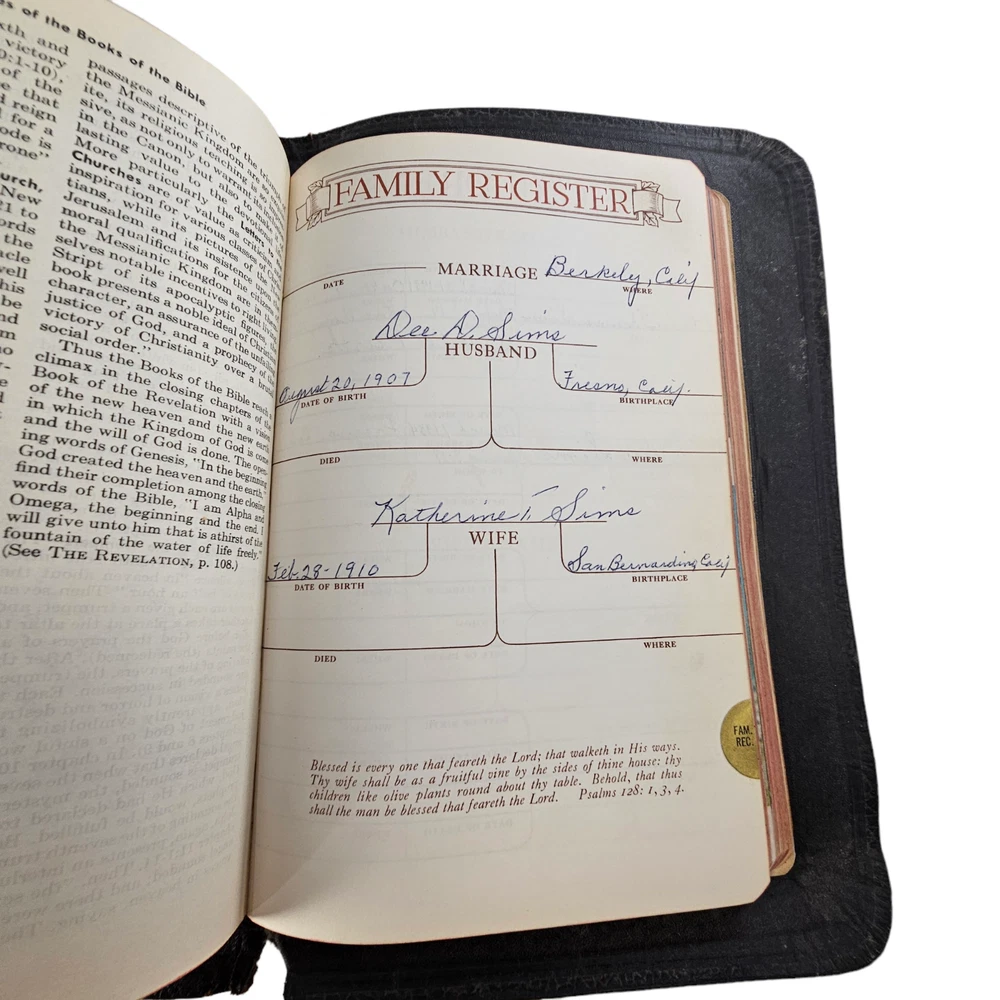 es of the Books of the Bible
xth and
victory
0:1-10),
of the
e that
d reign
for a
ode is
rone"
urch,
New
21 to
ords
the
acle
well
his
be
om
no
passages descriptive of the
the Messianic Kingdom are
ite, its religious teaching is so
sive, as not only to warrant its
in the Canon, but also to make
lasting value to the devotional
More particularly the Letters to
Churches are of value as criticism
inspiration for various classes of
tians, while its pictures of the
Jerusalem and its insistence upon
moral qualifications for the citizens
the Messianic Kingdom are in
selves notable incentives to right
Stript of its apocalyptic figures, the
book presents a noble ideal of Christian
character, an assurance of the unfailing
justice of God, and a prophecy of the
victory of Christianity over a brutal
social order."
Thus the Books of the Bible reach a
climax in the closing chapters of the
Book of the Revelation with a vision
of the new heaven and the new earth
in which the Kingdom of God is come
and the will of God is done. The open-
ing words of Genesis, "In the beginning
God created the heaven and the earth,"
find their completion among the closing
words of the Bible, "I am Alpha and
Omega, the beginning and the end. I
will give unto him that is athirst of the
fountain of the water of life freely."
(See THE REVELATION, p. 108.)
FAMILY REGISTER
MARRIAGE Berkely, Calif
DATE WHERE
Dee D. Sims
HUSBAND
August 20, 1907 Fresno, Calif.
DATE OF BIRTH BIRTHPLACE
DIED WHERE
Katherine T. Sims
WIFE
Feb. 28-1910 San Bernardino, Calif
DATE OF BIRTH BIRTHPLACE
DIED WHERE
FAM.
REC.
Blessed is every one that feareth the Lord; that walketh in His ways.
Thy wife shall be as a fruitful vine by the sides of thine house: thy
children like olive plants round about thy table. Behold, that thus
shall the man be blessed that feareth the Lord. Psalms 128: 1, 3, 4.